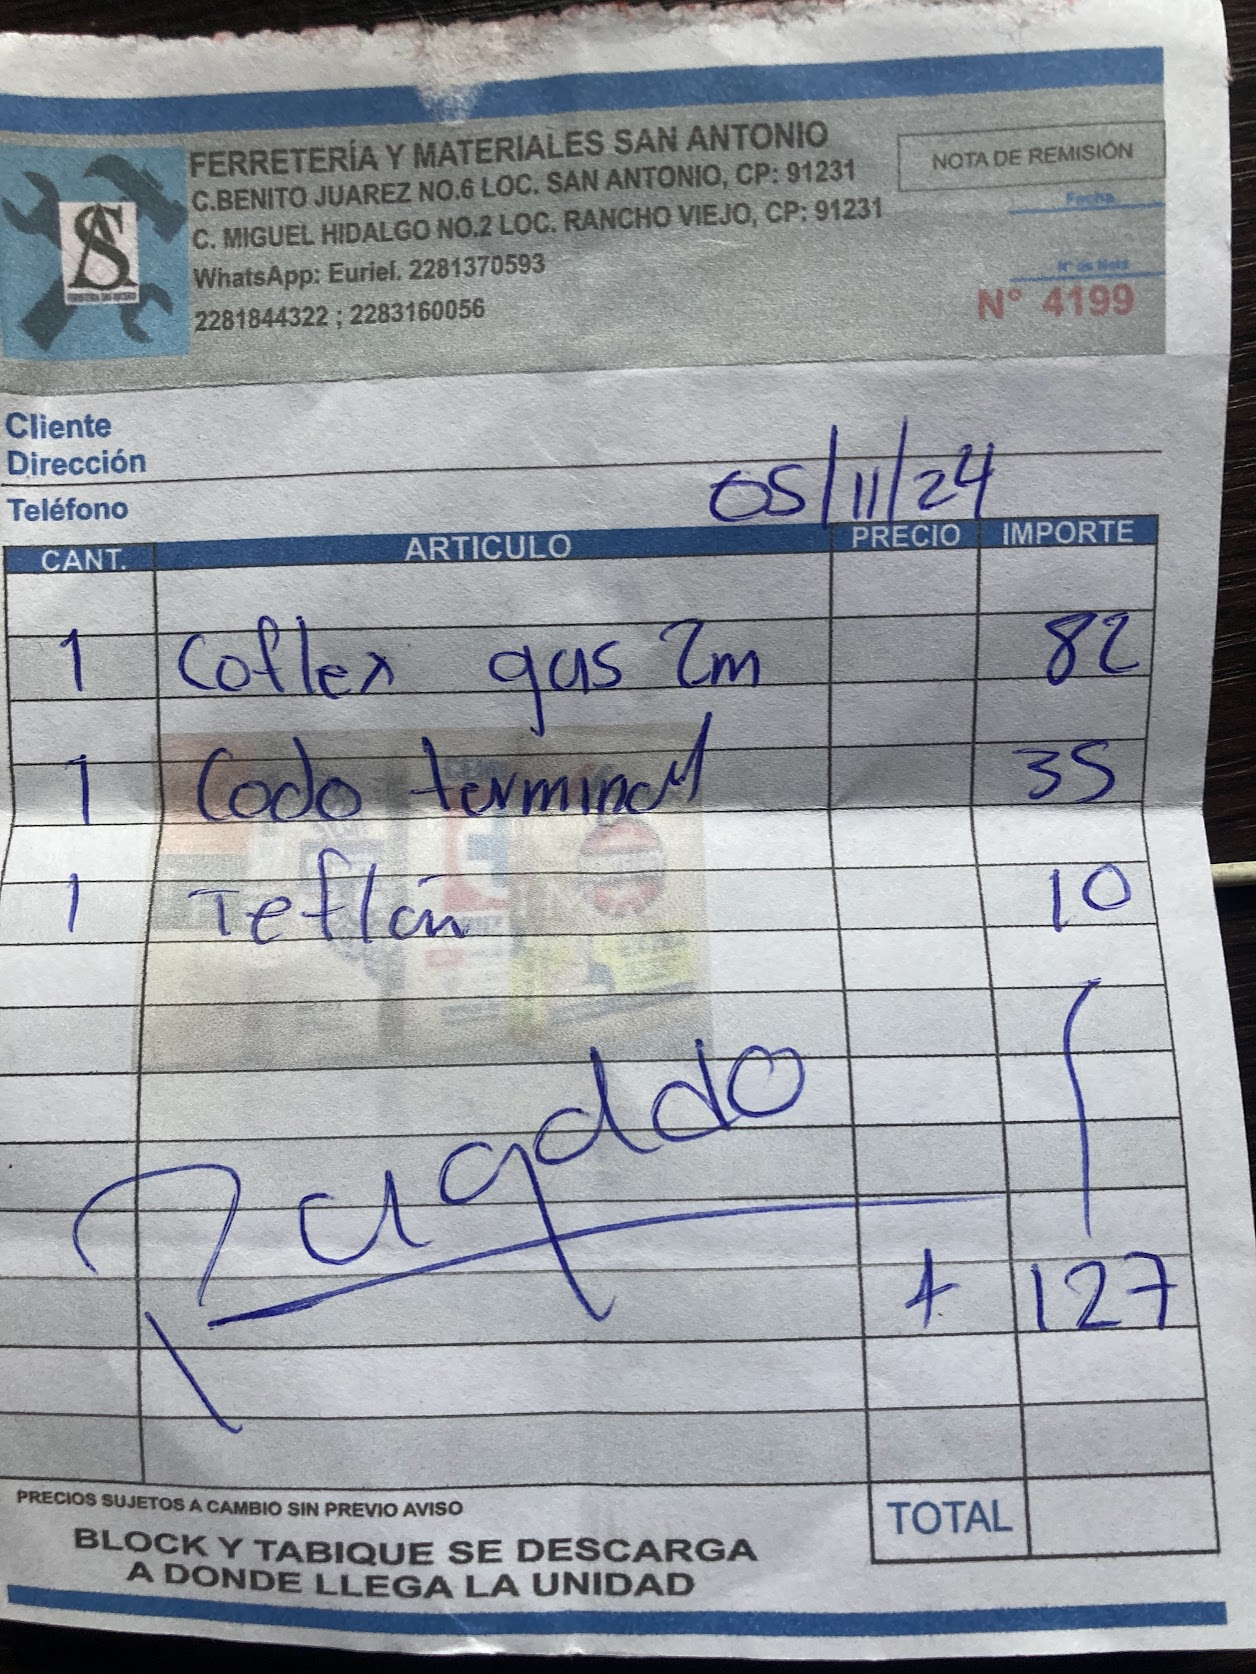 FERRETERÍA Y MATERIALES SAN ANTONIO
C.BENITO JUAREZ NO.6 LOC. SAN ANTONIO, CP: 91231
C. MIGUEL HIDALGO NO.2 LOC. RANCHO VIEJO, CP: 91231
WhatsApp: Euriel. 2281370593
2281844322 ; 2283160056
NOTA DE REMISIÓN
Fecha
N° de Nota
N° 4199
Cliente
Dirección
Teléfono
05/11/24
CANT. ARTICULO PRECIO IMPORTE
1 Coflex gas 2m 82
1 Codo terminal 35
1 Teflón 10
Pagado
127
PRECIOS SUJETOS A CAMBIO SIN PREVIO AVISO
BLOCK Y TABIQUE SE DESCARGA
A DONDE LLEGA LA UNIDAD
TOTAL